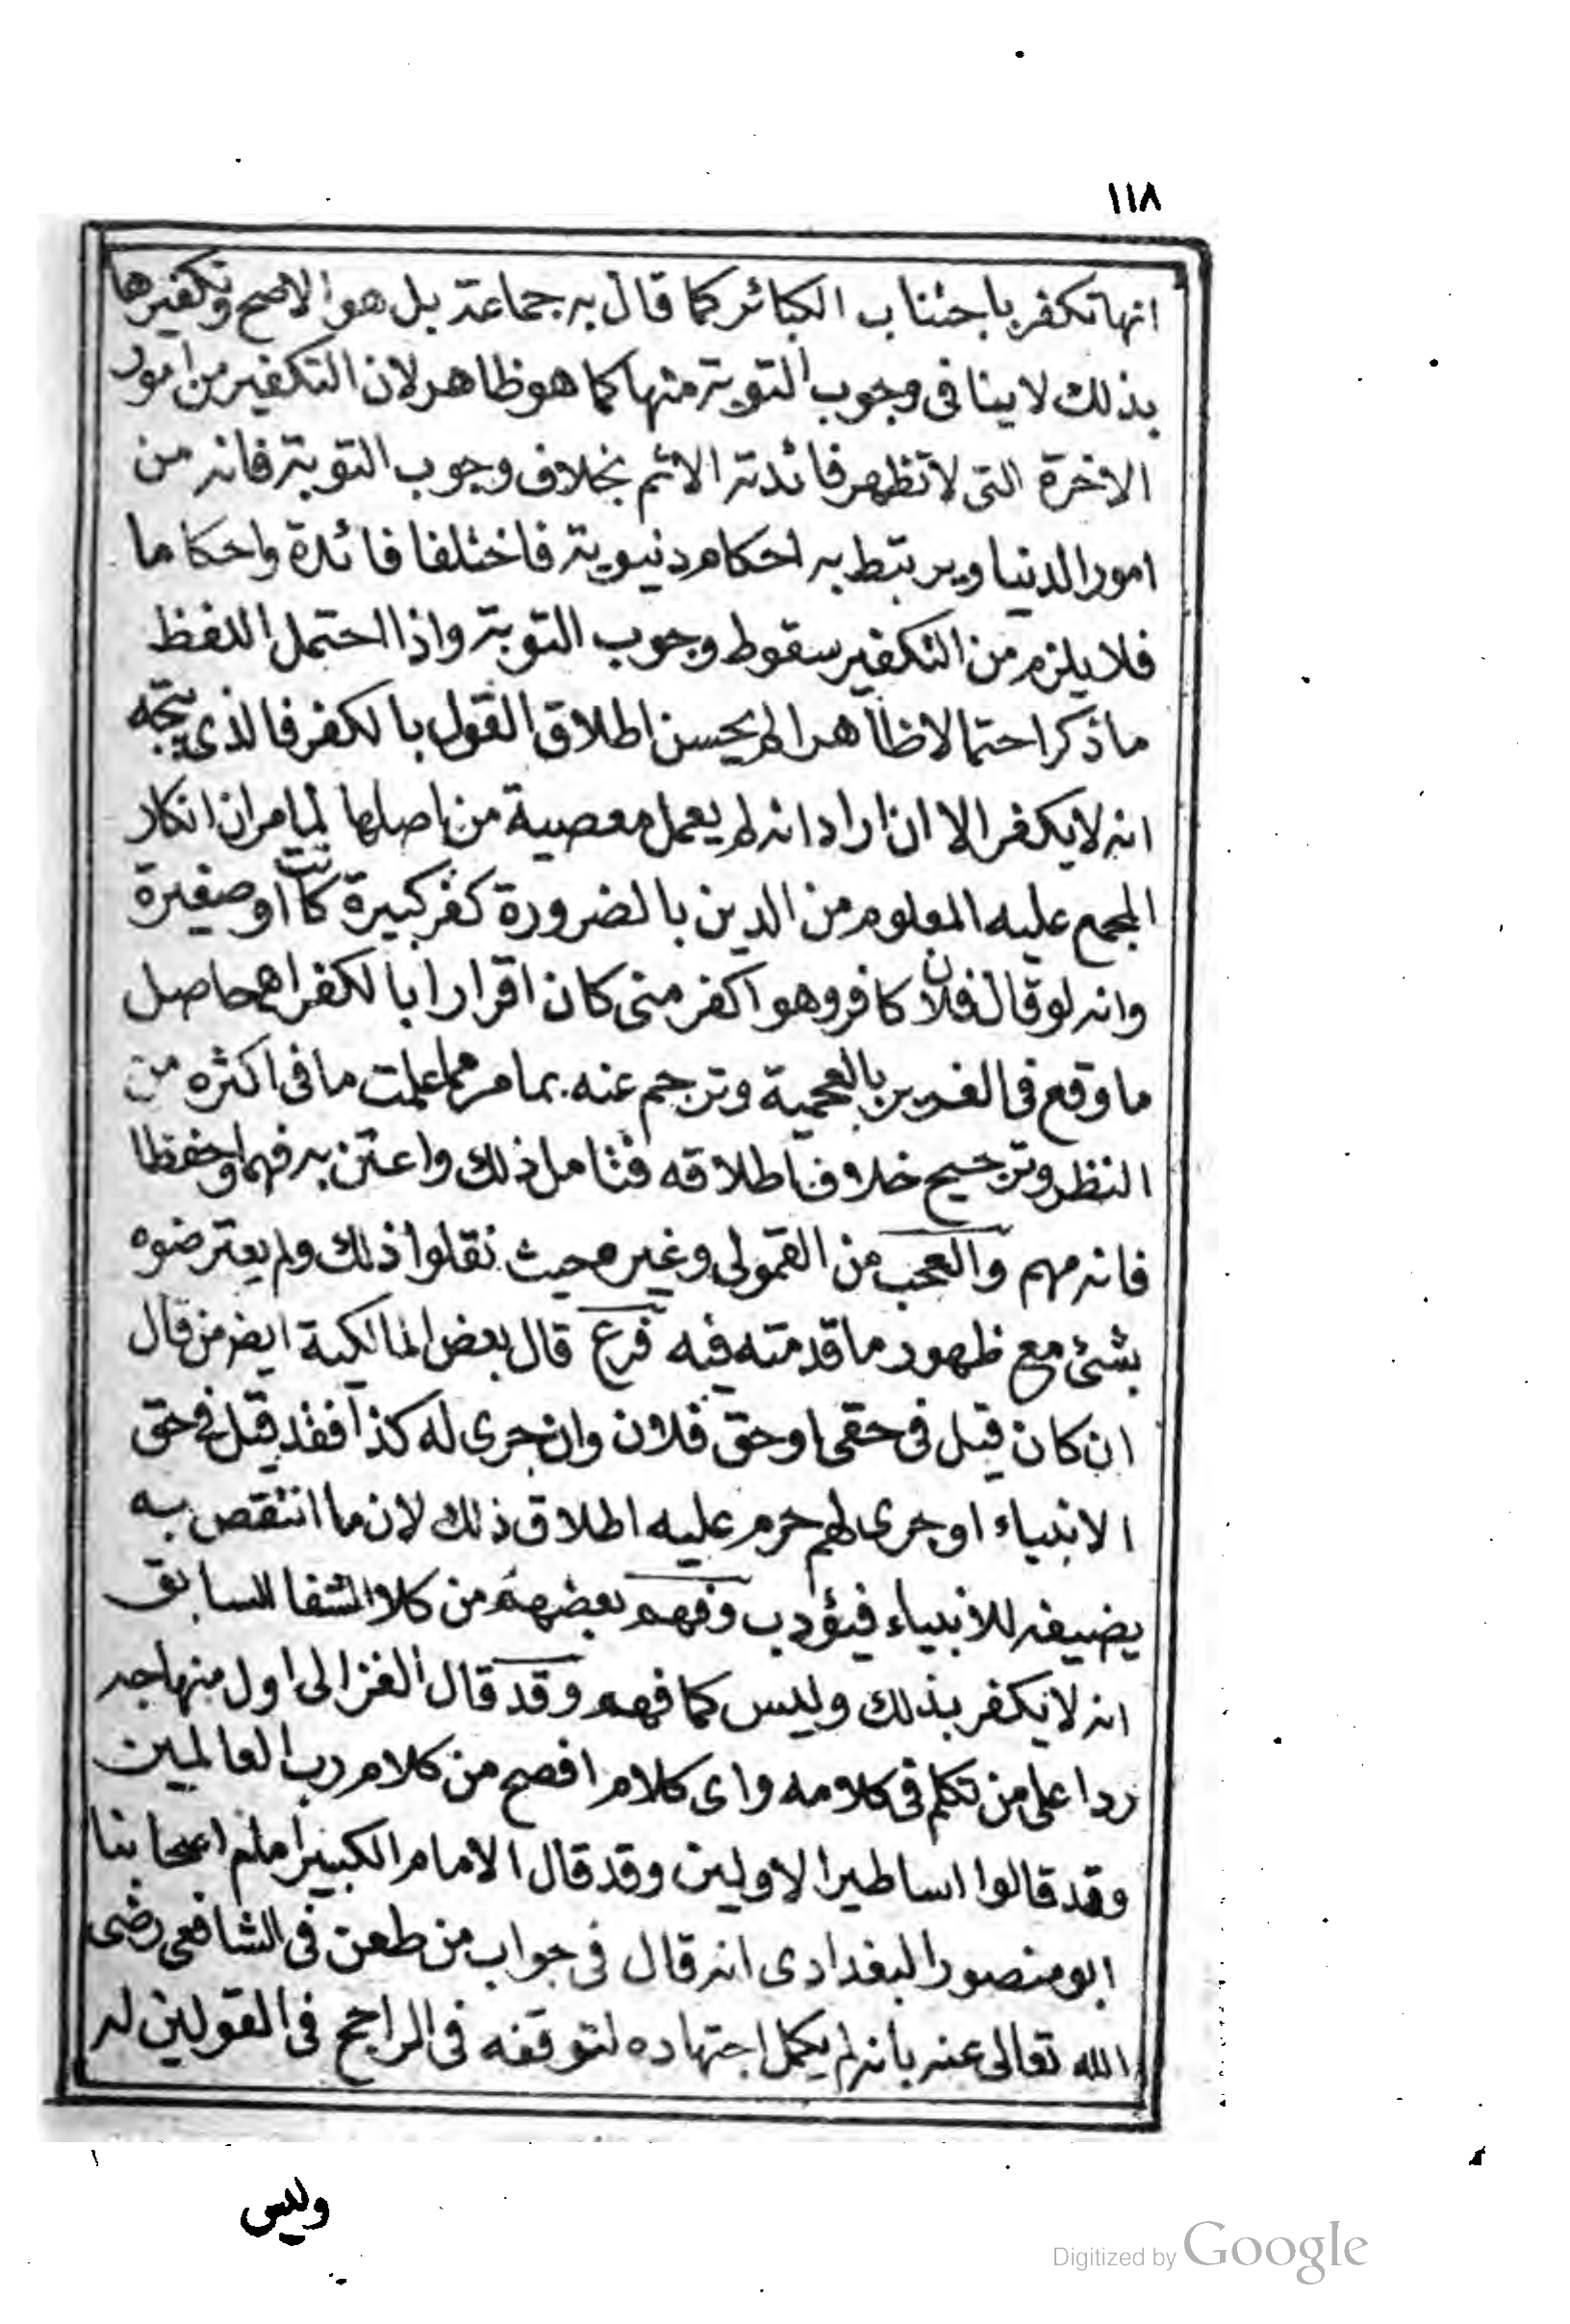 ١١٨
انها تكفر باجتناب الكبائر كما قال به جماعة بل هو الاصح وتكفيرها
بذلك لا ينافى وجوب التوبة منها كما هو ظاهر لان التكفير من امور
الاخرة التى لا تظهر فائدته الاثم بخلاف وجوب التوبة فانه من
امور الدنيا ويرتبط به احكام دنيوية فاختلفا فائدة واحكاما
فلا يلزم من التكفير سقوط وجوب التوبة واذا احتمل اللفظ
ما ذكر احتمالا ظاهرا لم يحسن اطلاق القول بالكفر فالذى يتجه
انه لا يكفر الا ان اراد انه لم يعمل معصية من اصلها لما مر ان انكار
المجمع عليه المعلوم من الدين بالضرورة كفر كبيرة كانت او صغيرة
وانه لو قال فلان كافر وهو اكفر منى كان اقرارا بالكفر اهـ حاصل
ما وقع فى العزيز بالعجمية وترجم عنه بما مر مما علمت ما فى اكثره من
النظر وترجيح خلاف اطلاقه فتامل ذلك واعتن به فهما وحفظا
فانه مهم والعجب من القمولى وغيره حيث نقلوا ذلك ولم يعترضوه
بشئ مع ظهور ما قدمته فيه فرع قال بعض المالكية ايضر من قال
ان كان قيل فى حقى او حق فلان وان جرى له كذا فقد قيل فى حق
الانبياء او جرى لهم حرم عليه اطلاق ذلك لان ما انتقص به
يضيفه للانبياء فيؤدب وفهم بعضهم من كلام الشفا السابق
انه لا يكفر بذلك وليس كما فهم وقد قال الغزالى اول منهاجه
ردا على من تكلم فى كلامه واى كلام افصح من كلام رب العالمين
وقد قالوا اساطير الاولين وقد قال الامام الكبير امام اصحابنا
ابو منصور البغدادى انه قال فى جواب من طعن فى الشافعى رضى
الله تعالى عنه بانه لم يكمل اجتهاده لتوقفه فى الراجح فى القولين له
وليس
Digitized by Google